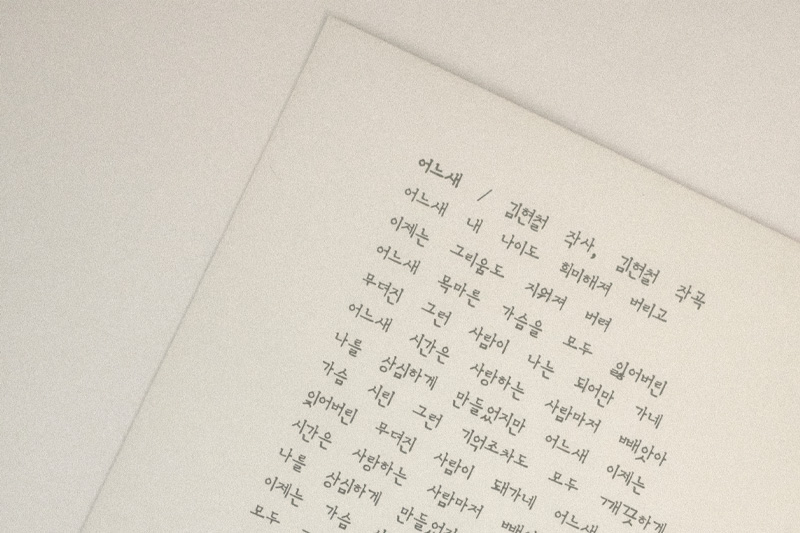 어느새 / 김현철 작사, 김현철 작곡
어느새 내 나이도 희미해져 버리고
이제는 그리움도 지워져 버려
어느새 목마른 가슴을 모두 잃어버린
무뎌진 그런 사람이 나는 되어만 가네
어느새 시간은 사랑하는 사람마저 빼앗아
나를 상심하게 만들었지만 어느새 이제는
가슴 시린 그런 기억조차도 모두 깨끗하게
잊어버린 무뎌진 사람이 돼가네 어느새
시간은 사랑하는 사람마저
나를 상심하게
이제는 가슴
모두